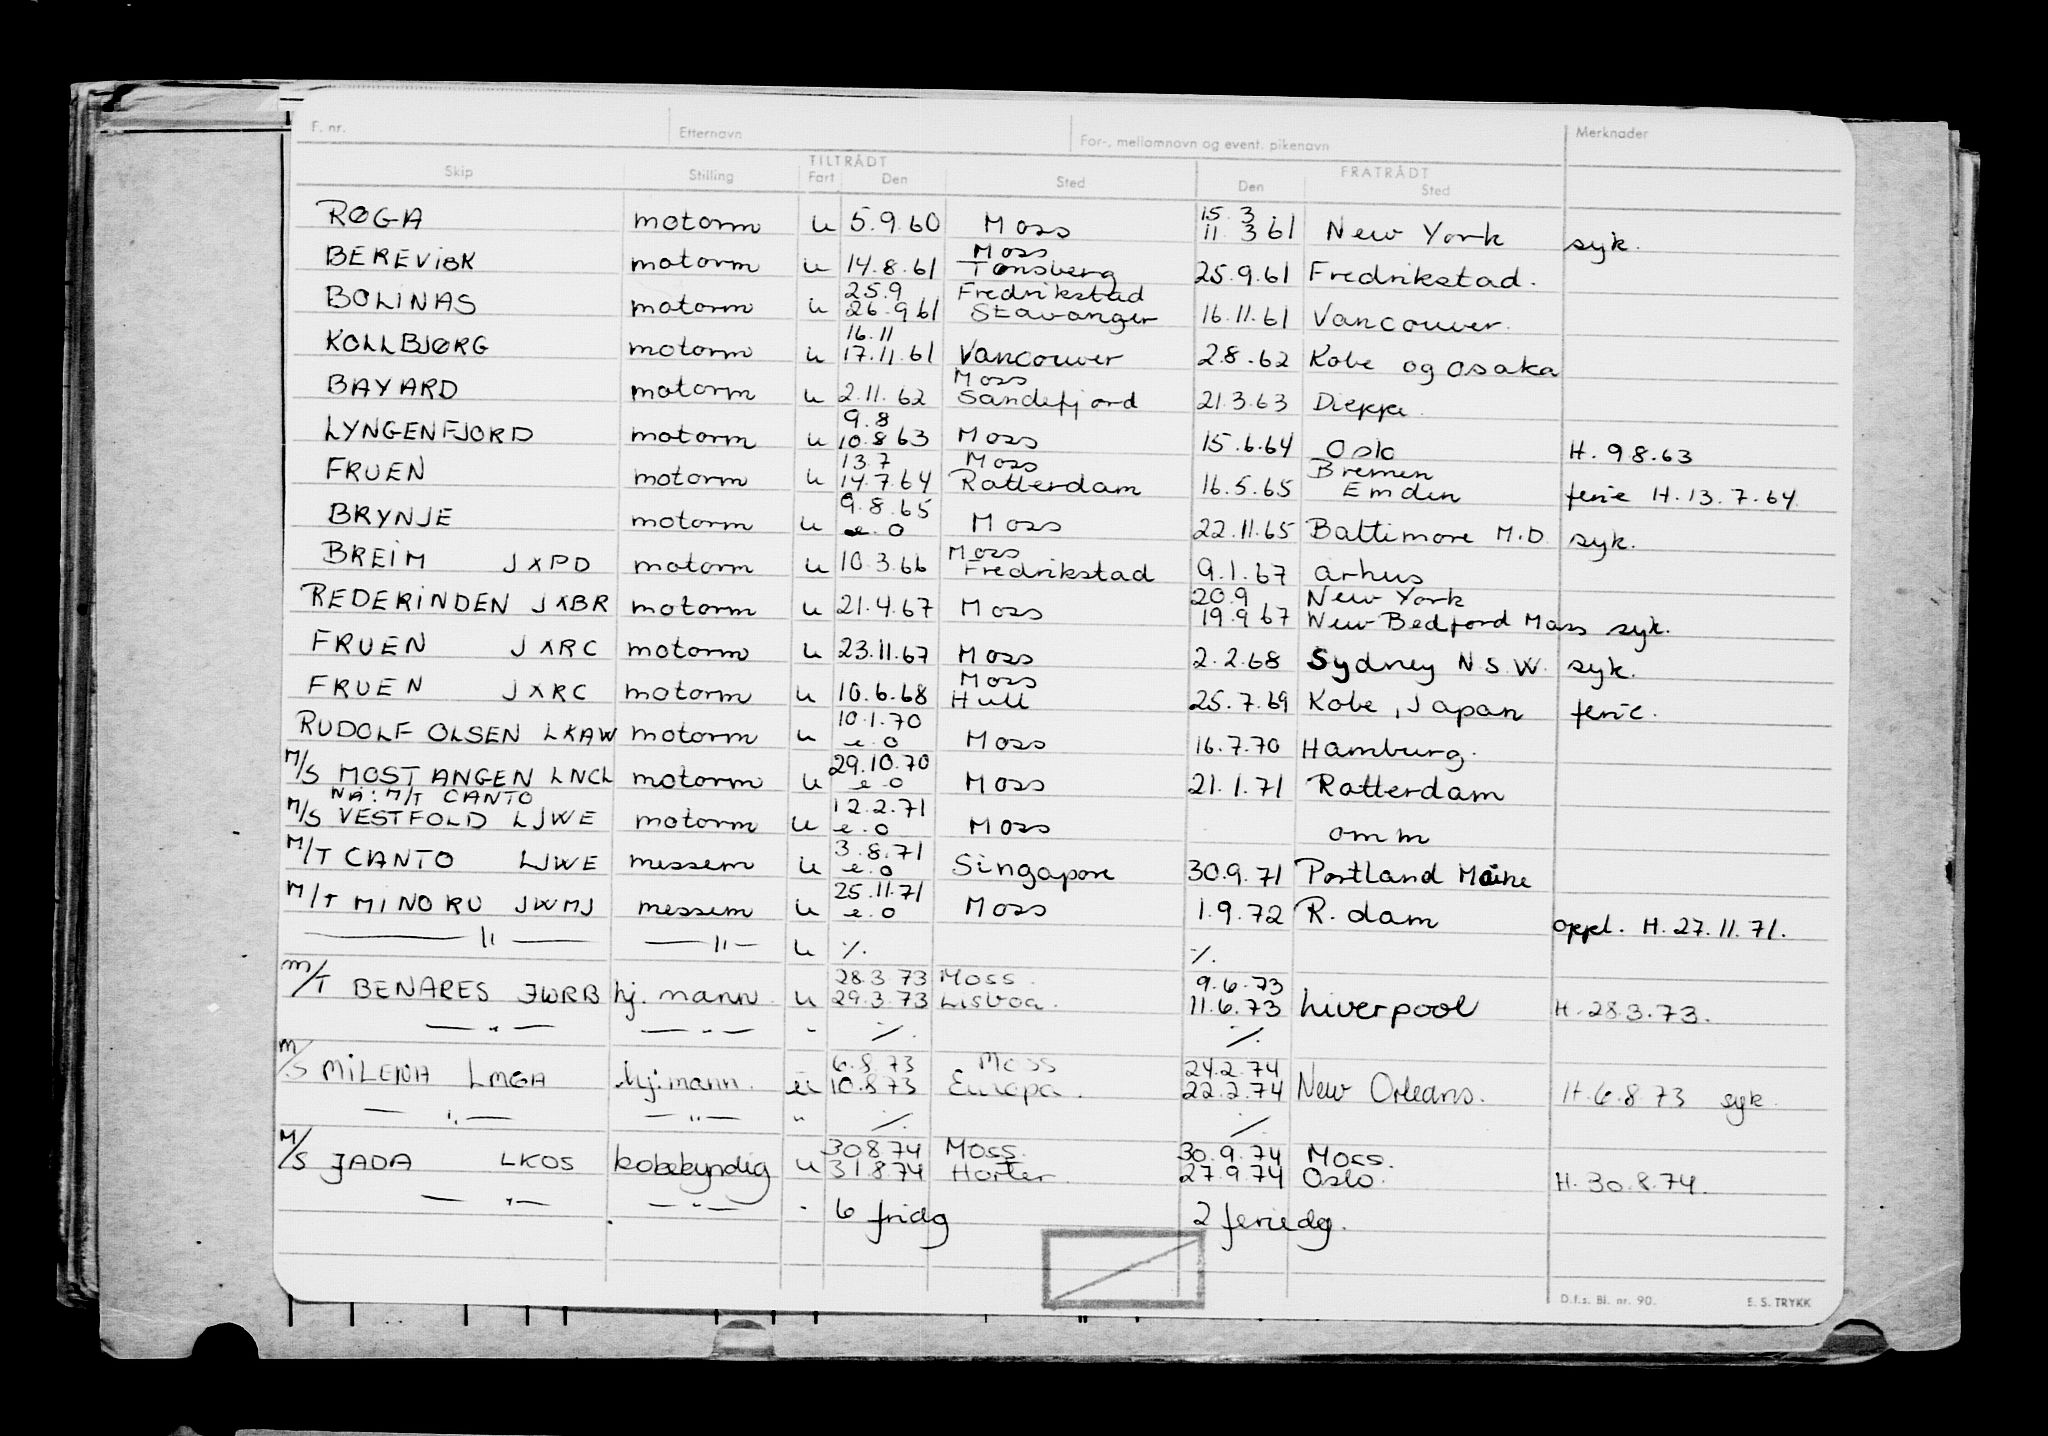 F. nr. Etternavn For-, mellomnavn og event. pikenavn Merknader
TILTRÅDT FRATRÅDT
Skip Stilling Fart Den Sted Den Sted
15.3
RØGA motorm u 5.9.60 Moss 11.3 61 New York syk.
Moss
BEREVIBK motorm u 14.8.61 Tønsberg 25.9.61 Fredrikstad.
25.9 Fredrikstad
BOLINAS motorm u 26.9 61 Stavanger 16.11.61 Vancouver.
16.11
KOLLBJØRG motorm u 17.11.61 Vancouver 2.8.62 Kobe og Osaka
Moss
BAYARD motorm u 2.11.62 Sandefjord 21.3.63 Dieppe.
9.8
LYNGENFJORD motorm u 10.8 63 Moss 15.6.64 Oslo H. 9.8.63
13.7 Moss Bremen
FRUEN motorm u 14.7.64 Rotterdam 16.5.65 Emden ferie H.13.7.64.
9.8.65
BRYNJE motorm u e.o Moss 22.11.65 Baltimore M.D. syk.
Moss
BREIM JXPD motorm u 10.3.66 Fredrikstad 9.1.67 Århus
20.9 New York
REDERINDEN JXBR motorm u 21.4.67 Moss 19.9 67 New Bedford Mass syk.
FRUEN JXRC motorm u 23.11.67 Moss 2.2.68 Sydney N.S.W. syk.
Moss
FRUEN JXRC motorm u 10.6.68 Hull 25.7.69 Kobe, Japan ferie.
10.1.70
RUDOLF OLSEN LKAW motorm u e.o Moss 16.7.70 Hamburg.
29.10.70
M/S MOSTANGEN LNCL motorm u e.o Moss 21.1.71 Rotterdam
NÅ: M/T CANTO 12.2.71
M/S VESTFOLD LJWE motorm u e.o Moss omm
3.8.71
M/T CANTO LJWE messem u e.o Singapore 30.9.71 Portland Maine
25.11.71
M/T MINORU JWMJ messem u e.o Moss 1.9.72 R.dam oppl. H. 27.11.71.
— " — — " — u ·/. ·/.
28.3.73 Moss. 9.6.73
M/T BENARES JWRB hj.mann. u 29.3.73 Lisboa. 11.6.73 Liverpool H. 28.3.73.
— " — — " — " ·/. ·/.
6.8.73 Moss 24.2.74
M/S MILENA LMGA hj.mann. u 10.8.73 Europa. 22.2.74 New Orleans. H.6.8.73 syk.
— " — — " — " ·/. ·/.
30.8.74 Moss. 30.9.74 Moss.
M/S JADA LKOS kokekyndig u 31.8.74 Horten. 27.9.74 Oslo. H. 30.8.74.
— " — — " — " 6 fridg 2 feriedg.
D.f.s. Bl. nr. 90. E. S. TRYKK